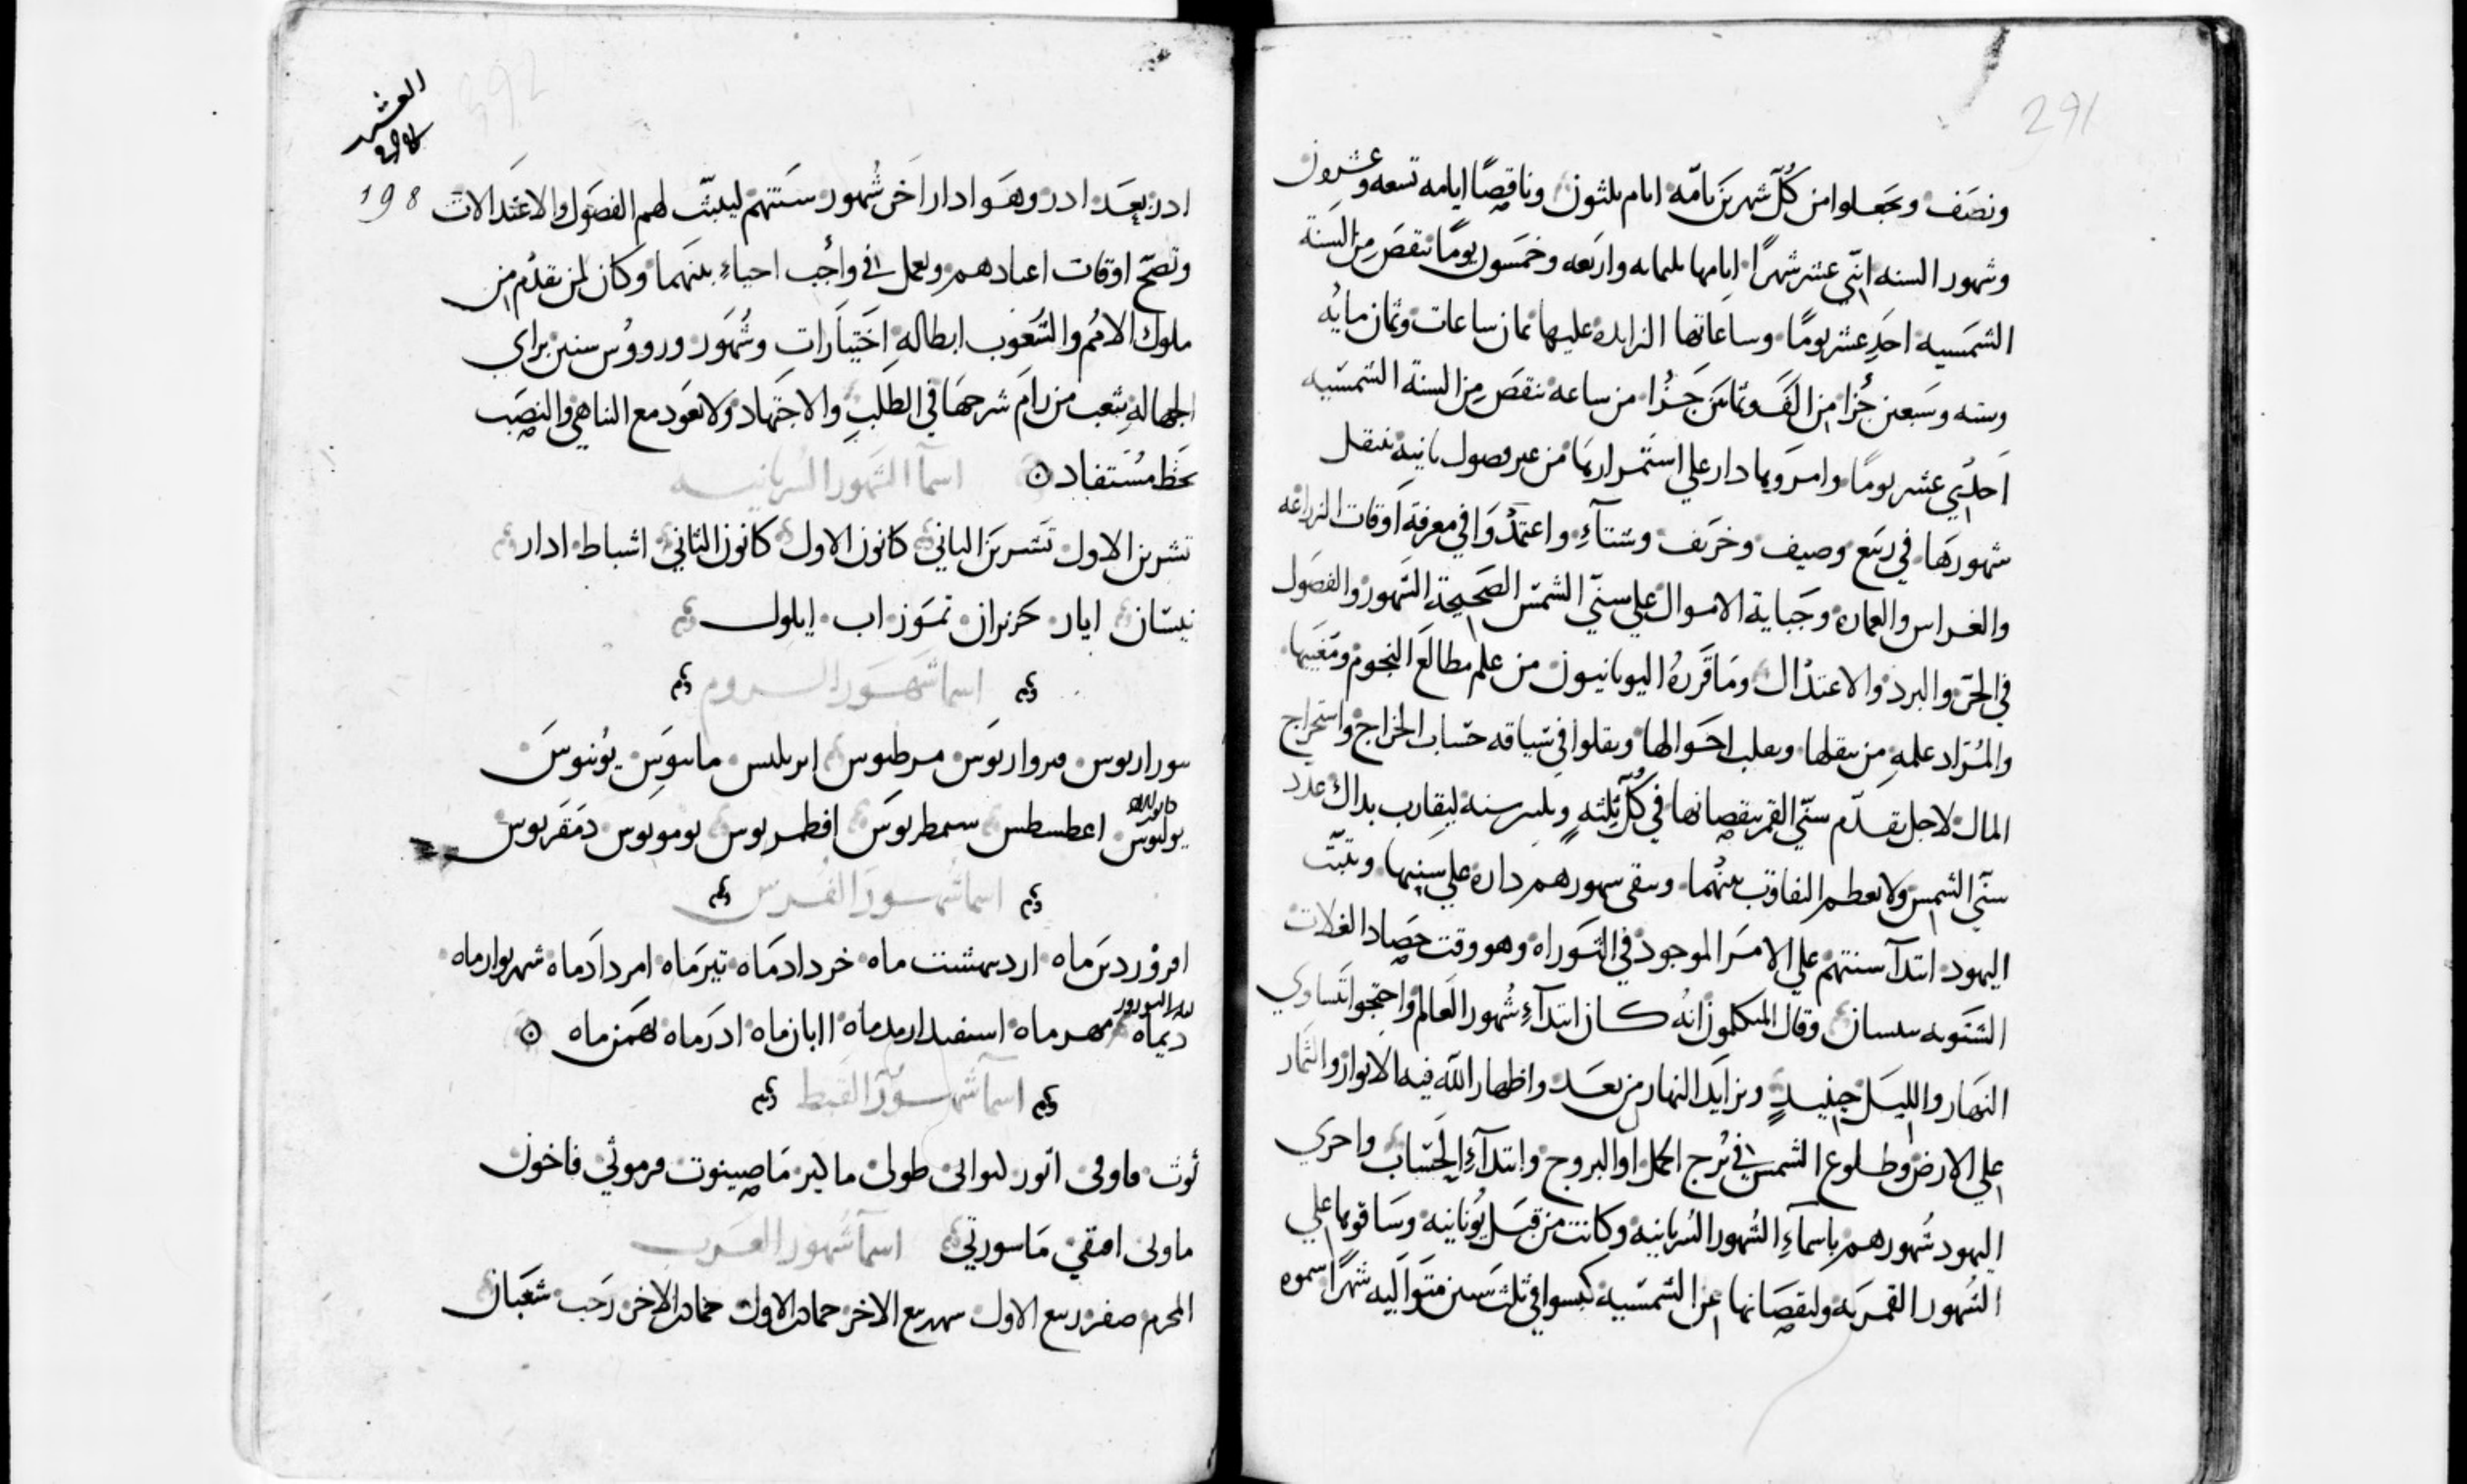 291
ونصف ويجعلوا من كل شهرين تامه ايام ثلثون وناقصا ايامه تسعه وعشرون
وشهور السنه اثني عشر شهرا ايامها ثلثمايه واربعه وخمسون يوما تنقص من السنة
الشمسيه احد عشر يوما وساعاتها الزايده عليها ثمان ساعات وثمان مايه
وسته وسبعين جزا من الف وثمانين جزا من ساعه تنقص من السنة الشمسيه
احدي عشر يوما وامرويها دار علي استمرارها من غير فصول ثانيه تنتقل
شهورها في ربيع وصيف وخريف وشتآء واعتمدوا في معرفة اوقات الزراعه
والغراس والعماره وجباية الاموال علي سني الشمس الصحيحة الشهور والفصول
في الحر والبرد والاعتدال وما قرره اليونانيون من علم مطالع النجوم ومغيبها
والمراد علمه من تنقلها وتقلب احوالها ونقلوا في سياقه حساب الخراج واستخراج
المال لاجل تقدم سني القمر بنقصانها في كل ثلثه وثلثين سنه ليقارب بذاك عدد
سني الشمس ولا يعظم التفاوت بينهما وتبقى شهورهم داره علي سنيها ويثبت
اليهود ابتدآ سنتهم علي الامر الموجود في التوراه وهو وقت حصاد الغلات
الشتويه بنيسان وقال المتكلمون انه كان ابتدآء شهور العالم واحتجوا بتساوي
النهار والليل حينيذ وتزايد النهار من بعد واظهار الله فيه الانوار والثمار
علي الارض وطلوع الشمس في برج الحمل او البروج وابتدآء الحساب واجري
اليهود شهورهم باسماء الشهور السريانيه وكانت من قبل يونانيه وساقوها علي
الشهور القمريه ولنقصانها عن الشمسيه كبسوا في ثلث سنين متواليه شهرا سموه
392
العشر
198
ادر بعد ادر وهو ادار اخر شهور سنتهم ليثبت لهم الفصول والاعتدالات
وتصح اوقات اعيادهم ويعمل في واجب احياء بينهما وكان لمن تقدم من
ملوك الامم والشعوب ابطاله اختيارات وشهور ورووس سنين براي
الجهاله يتعب من رام شرحها في الطلب والاجتهاد ولا يعود مع التناهي والنصب
بحظ مستفاد اسمآ الشهور السريانيه
تشرين الاول تشرين الثاني كانون الاول كانون الثاني اشباط ادار
نيسان ايار حزيران تموز اب ايلول
اسما شهور الروم
مرطيوس ابريليس مايوس يونيوس
يوليوس اغطسطس سمطريوس افطمريوس
اسما شهور الفرس
افروردين ماه اردبهشت ماه خردادماه تيرماه امردادماه شهريوارماه
ديماه مهرماه اسفيدارمدماه اابان ماه ادرماه بهمن ماه
اسمآ شهور القبط
توت طوبى ماكير فرموثي فاخون
ماوني اسمآ شهور العرب
المحرم صفر ربيع الاول ربيع الاخر جمادى الاول جمادى الاخر رجب شعبان